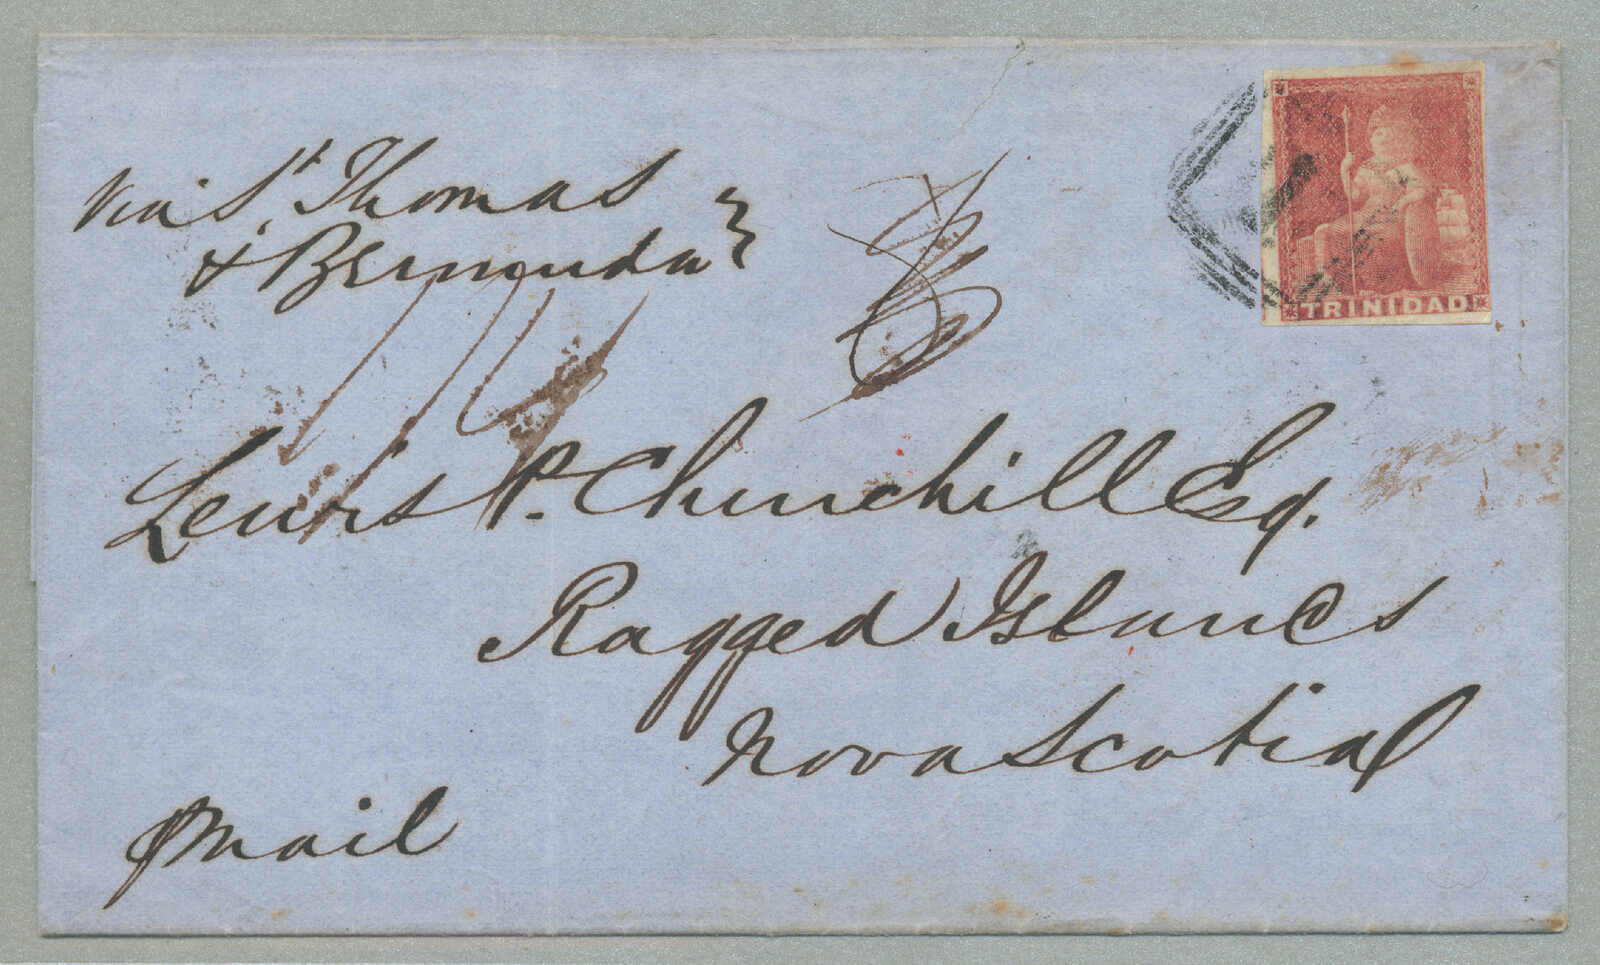 via St. Thomas
& Bermuda
TRINIDAD
Lewis P. Churchill Esq.
Ragged Islands
Nova Scotia
p mail